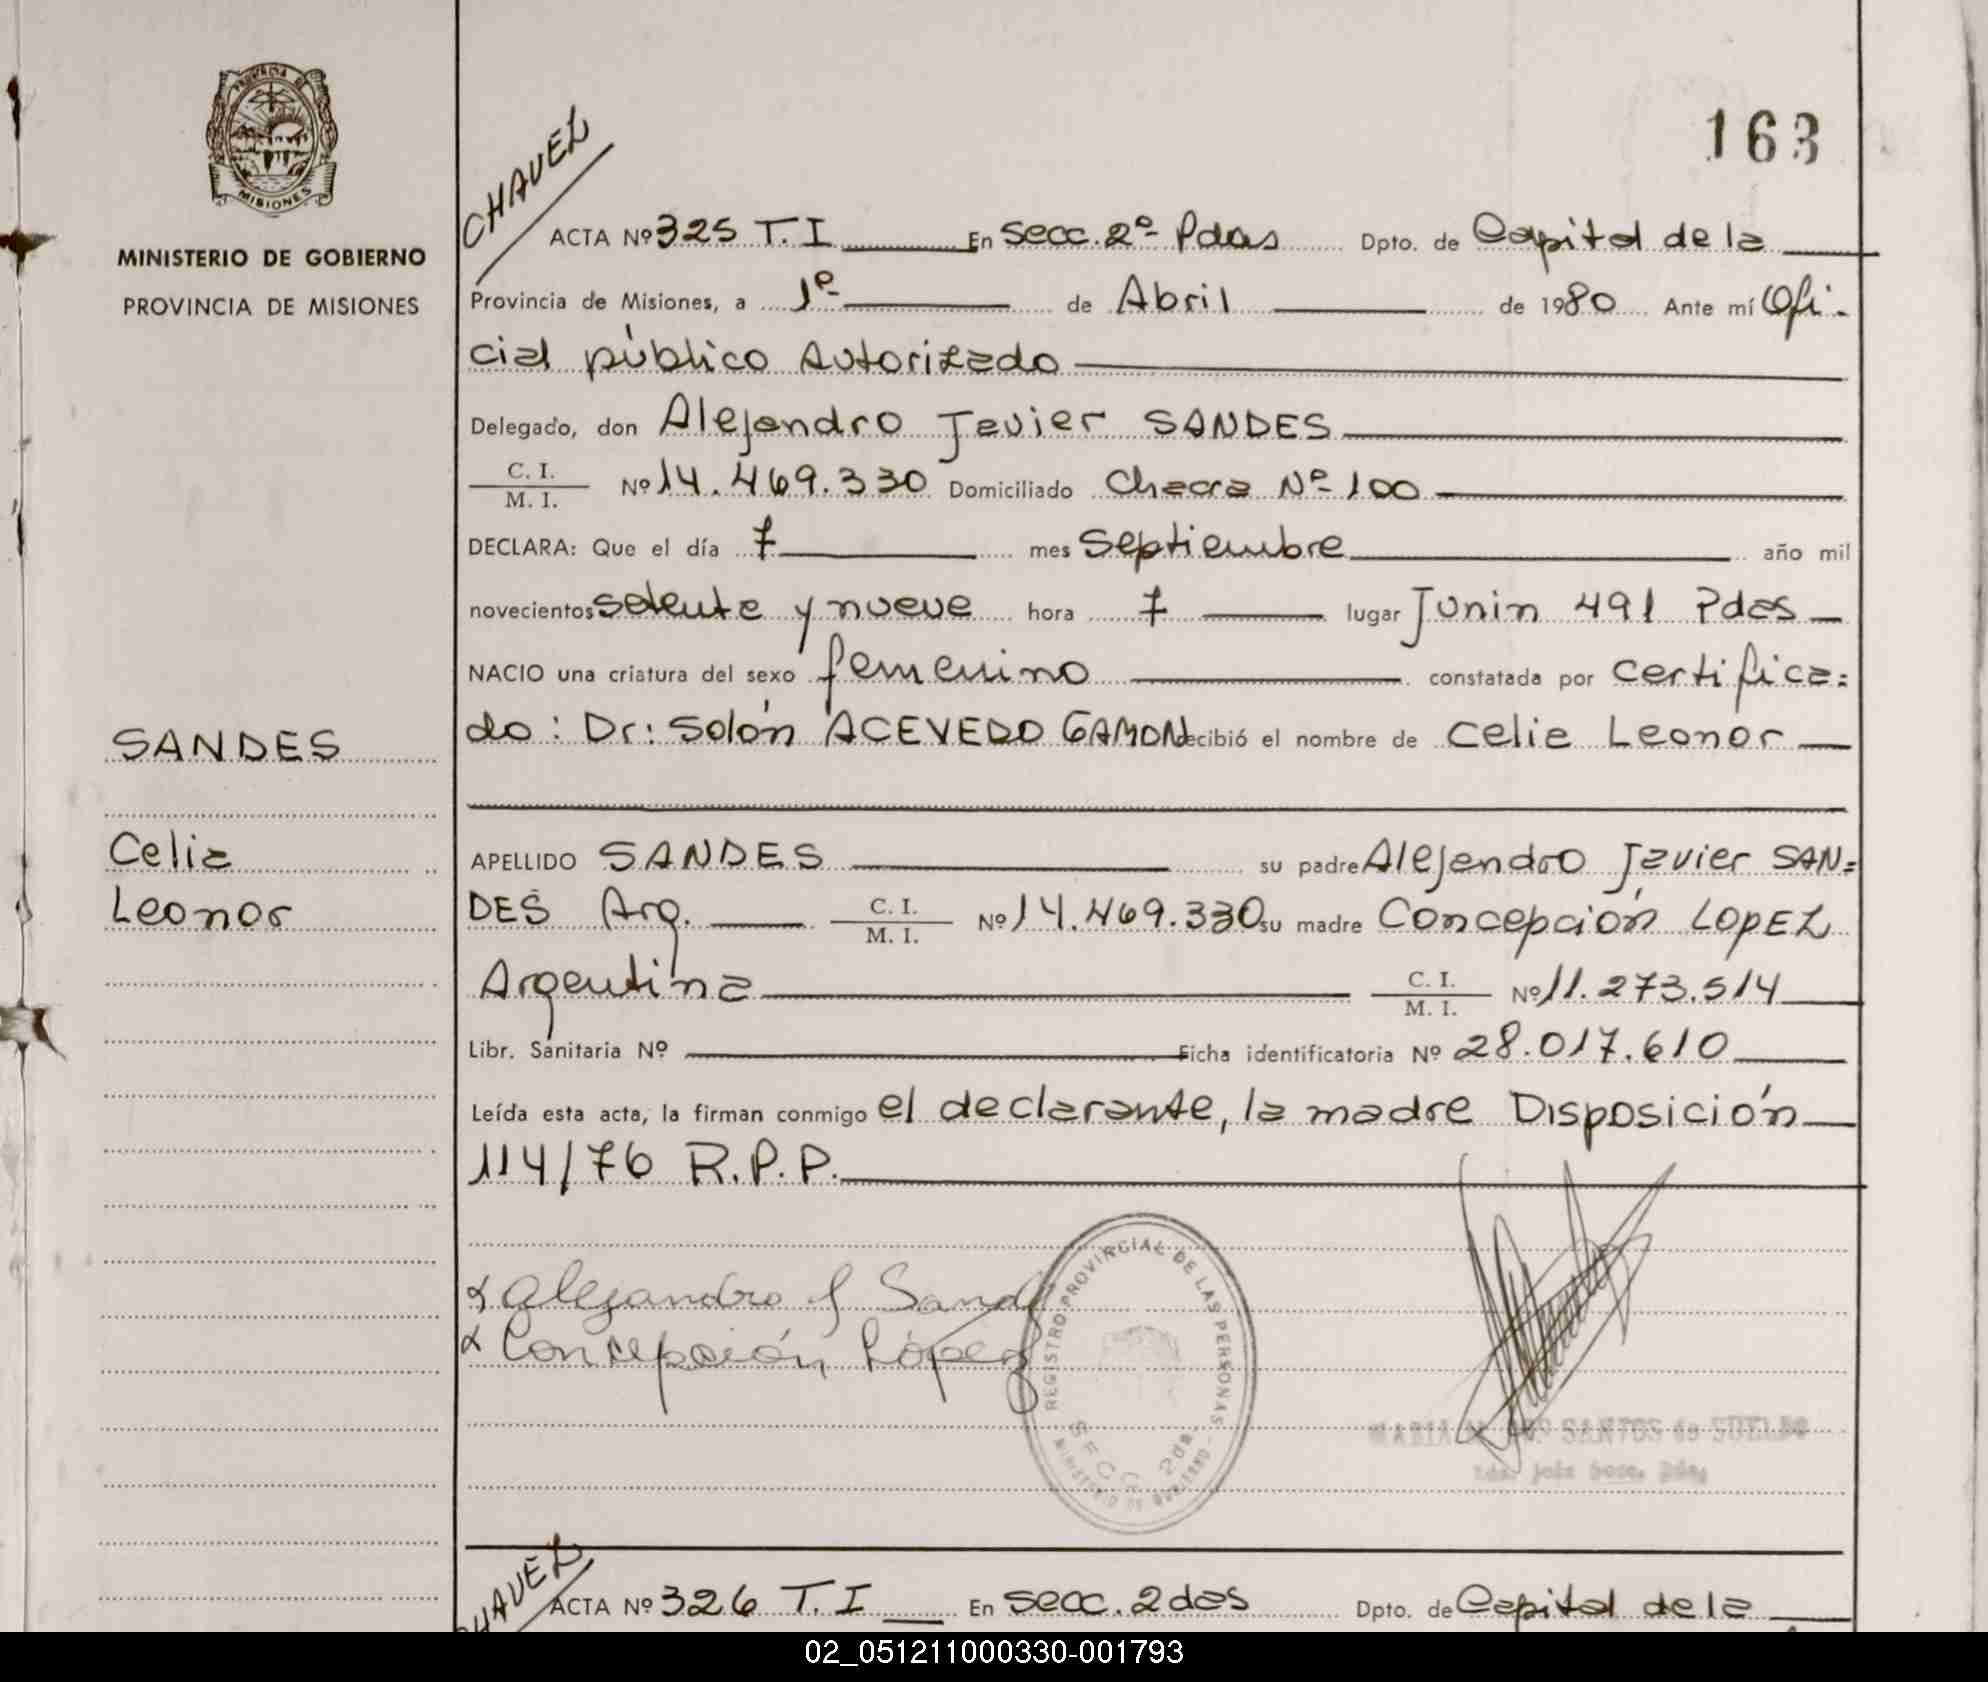 163
CHAVEZ
MINISTERIO DE GOBIERNO
PROVINCIA DE MISIONES
PROVINCIA DE
MISIONES
ACTA Nº 325 T. I En Secc. 2º Pdas Dpto. de Capital de la
Provincia de Misiones, a 1º de Abril de 1980 Ante mí Ofi-
cial público Autorizado
Delegado, don Alejandro Javier SANDES
C. I.
M. I. Nº 14.469.330 Domiciliado Chacra Nº 100
DECLARA: Que el día 7 mes Septiembre año mil
novecientos setenta y nueve hora 7 lugar Junin 491 Pdas
NACIO una criatura del sexo femenino constatada por certifica=
do: Dr: Solón ACEVEDO GAMON recibió el nombre de Celia Leonor
SANDES
Celia
Leonor
APELLIDO SANDES su padre Alejandro Javier SAN=
DES Arg. C. I.
M. I. Nº 14.469.330 su madre Concepción LOPEZ
Argentina C. I.
M. I. Nº 11.273.514
Libr. Sanitaria Nº Ficha identificatoria Nº 28.017.610
Leída esta acta, la firman conmigo el declarante, la madre Disposición
114/76 R.P.P.
Alejandro J Sandes
Concepción López
REGISTRO PROVINCIAL DE LAS PERSONAS
SECC 2da
MINISTERIO DE GOBIERNO
SANTOS de
CHAVEZ
ACTA Nº 326 T. I En Secc. 2 das Dpto. de Capital de la
02_051211000330-001793